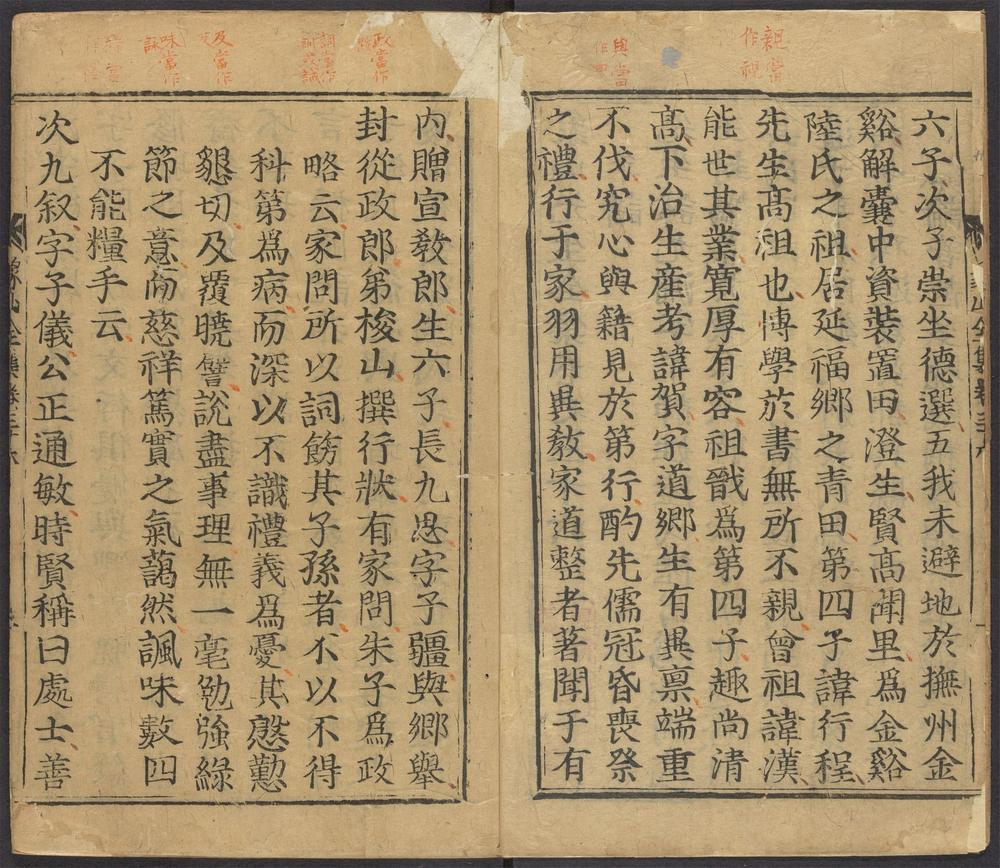 六子次子崇坐德選五我未避地於撫州金
谿解囊中資裝置田澄生賢髙閭里爲金谿
陸氏之祖居延福鄉之青田第四子諱行程
先生髙祖也博學於書無所不親曾祖諱漢
能世其業寬厚有容祖戬爲第四子趣尚清
髙不治生産考諱賀字道鄉生有異禀端重
不伐究心與籍見於第行酌先儒冠昏喪祭
之禮行于家羽用異敎家道整者著聞于有
内贈宣敎郎生六子長九思字子彊與鄉舉
封從政郎弟梭山撰行狀有家問朱子爲政
略云家問所以詞餝其子孫者不以不得
科第爲病而深以不識禮義爲憂其慇懃
懇切及覆曉譬說盡事理無一毫勉強綠
節之意而慈祥篤實之氣藹然諷味數四
不能糧手云
次九叙字子儀公正通敏時賢稱曰處士善
親當作視
與當作
政當作
詞當作訓義識
及當作
味當作詠
象山全集卷三十六